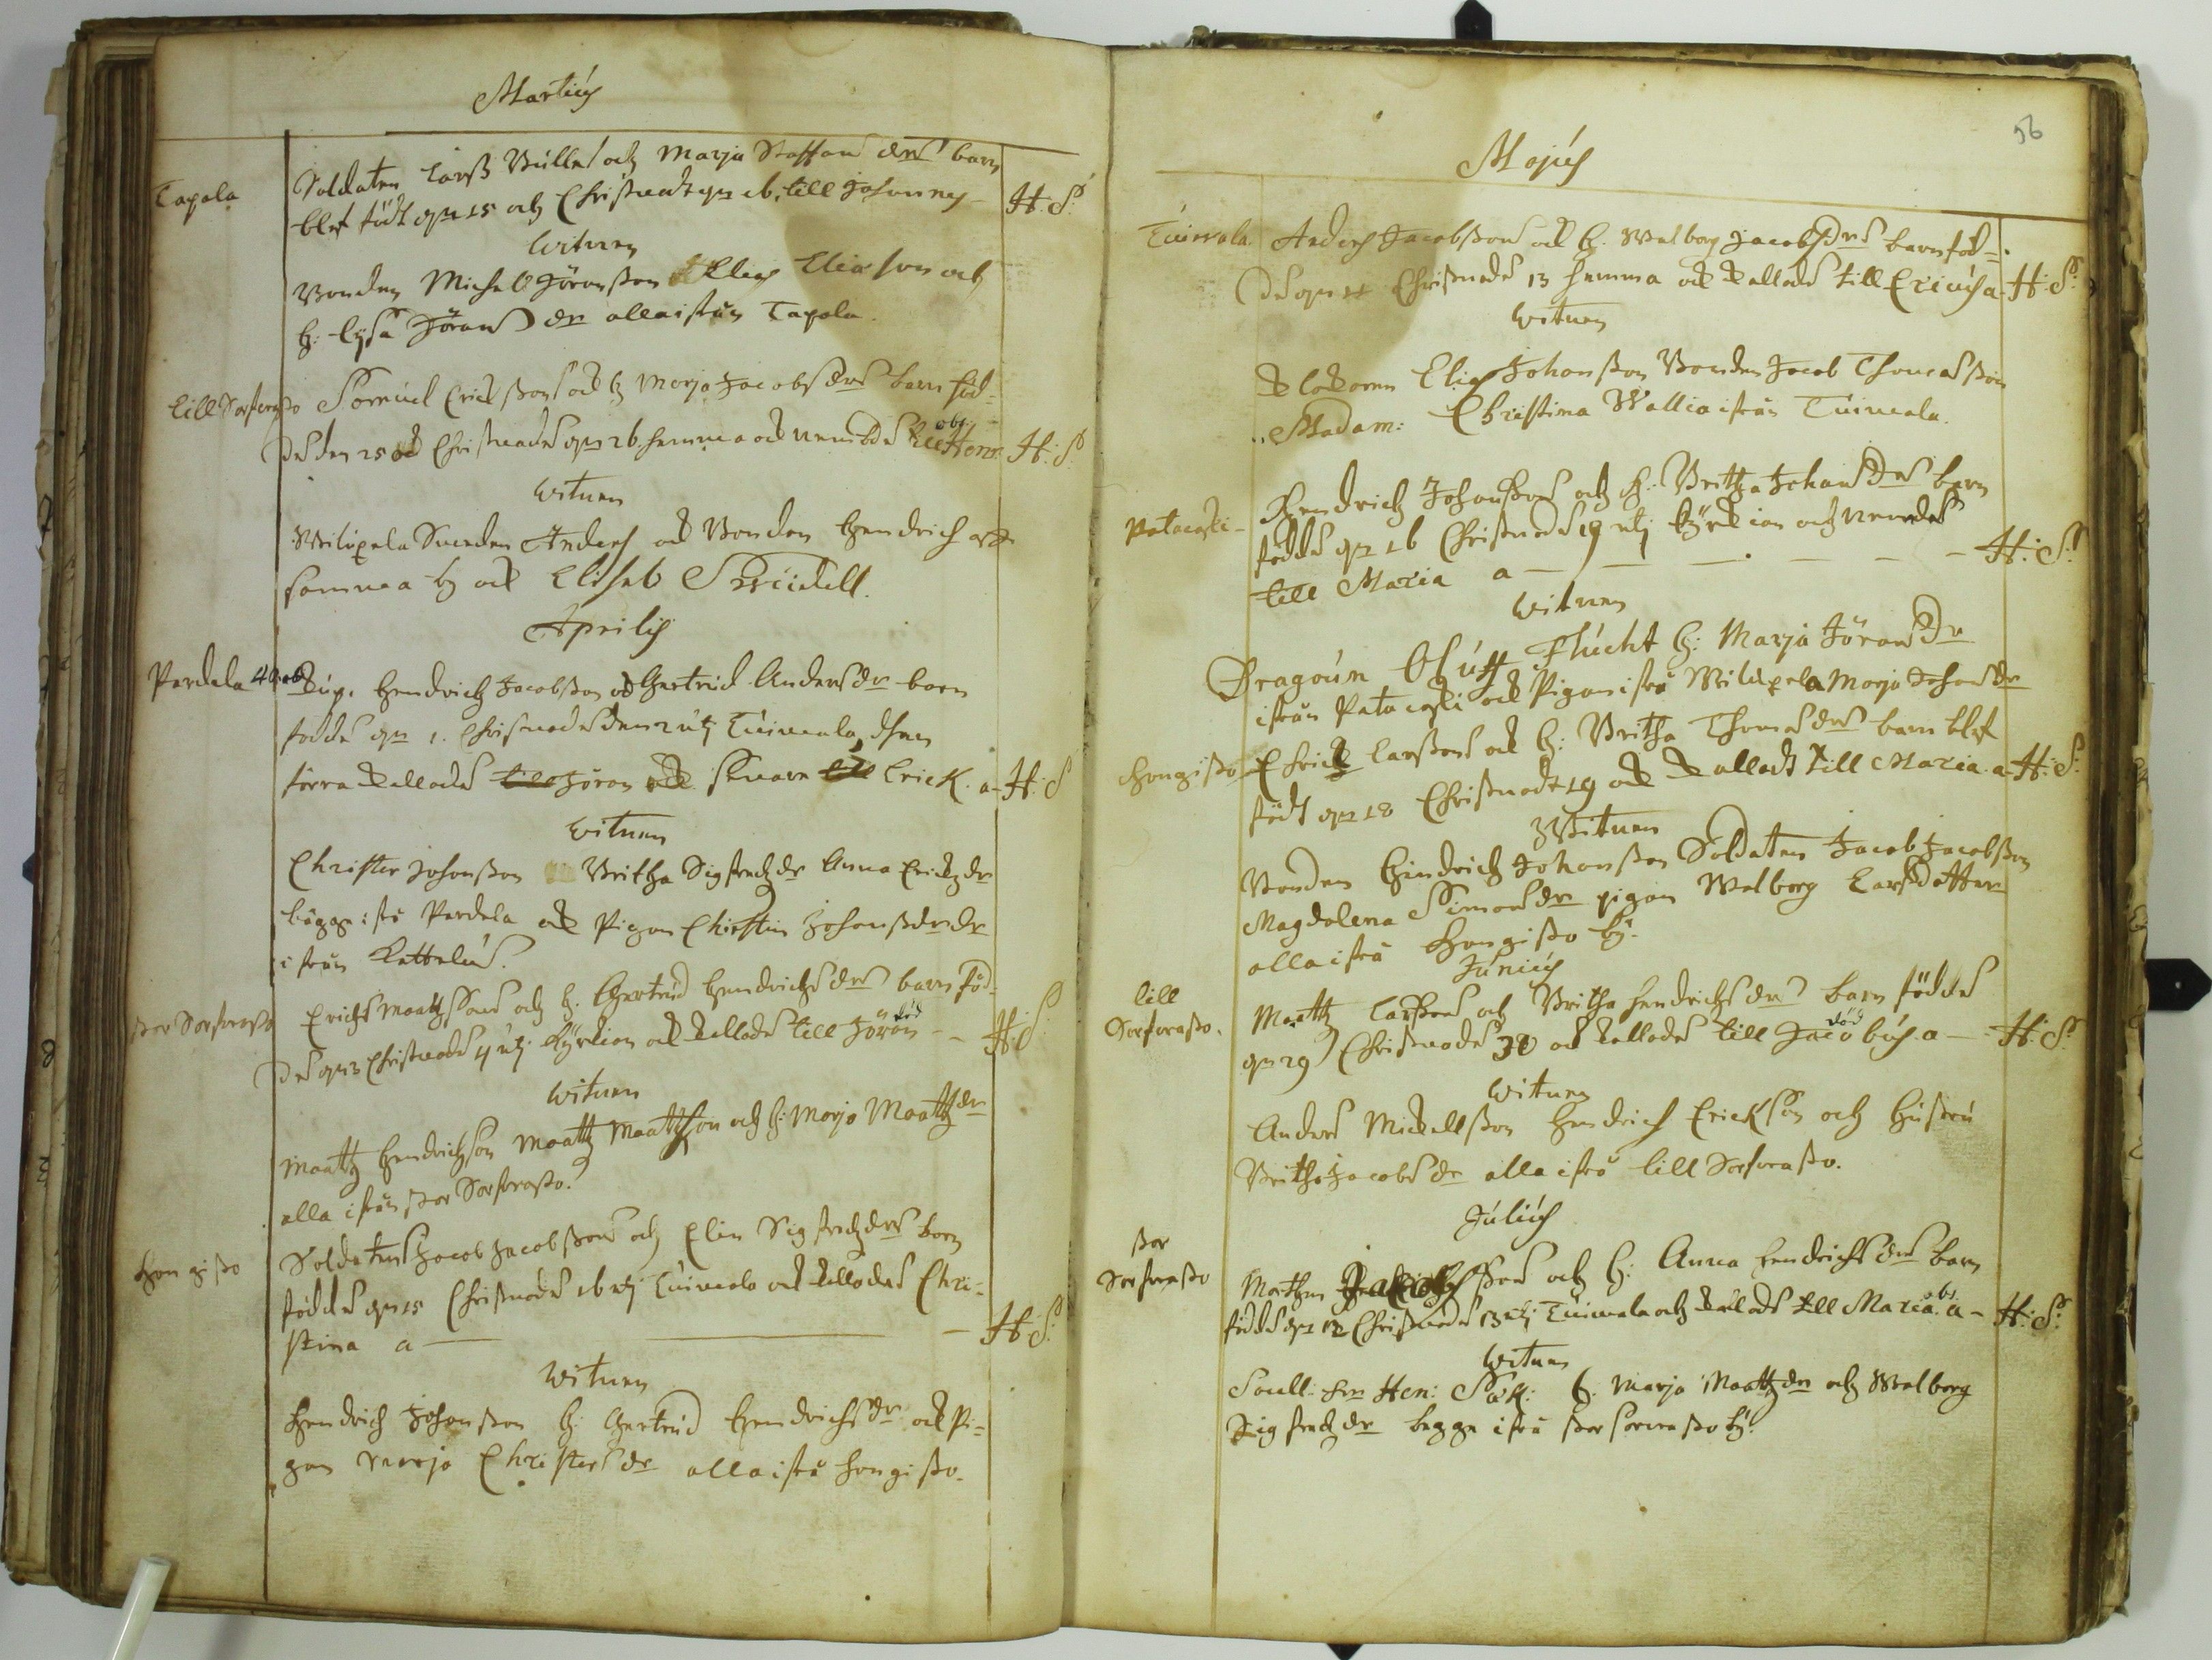 Martius
Tapala
Soldaten Larß Bulles och Marja Staffans drs barn
blef födt den 15 och Christnadt den 16. till Johannes
H: S:
Witnen
Bonden Michell Jöransson Elias Eliasson och
h: Lysa Jörans dr alla ifrån Tapala.
Lill Sorfvasto
Samuel Erickßons och h Marja Jacobs drs barn föd=
des den 25 och Christnades den 26. hemma och nemdes Henr. obs.
H: S:
Witnen
Anders och Bonden Hendrich
samma by och Elisab
Aprilis
Perdala
Hendrich Jacobßon och Gertrud Anders dr barn
föddes den 1. Christnades den 2 utj Tuimala, den
förra kallades till Jöran och senare till Erick. a
H: S
Witnen
Christer Johanßon Britha Sigfredz dr Anna Erickz dr
bägge ifrå Perdala och Pigan Christin Johanß dr
ifrån Kattelus.
Stor Sorfvasto
Erichs Maattzsons och h. Gertrud Hendrichs drs barn föd=
des den 3 Christnades 4 utj Kyrkian och kallades till Jöran död
H: S:
Witnen
Maattz Hendrichson Maattz Maattzson och h: Marja Maattz dr
alla ifrån stor Sorfvasto.
Hongisto
Soldatens Jacob Jacobßons och Elin Sigfredz drs barn
föddes den 15 Christnades 16 utj Tuimala och kallades Chri=
stina a
H: S:
Witnen
Hendrich Johanßon h: Gertrud Hendrichs dr och Pi=
gan Marja Christers dr alla ifrå Hongisto.
56
Majus
Tuimala
Anders Jacobßons och h. Walborg Jacobs drs barn föd=
des den 11 Christnades 13 hemma och kallades till Ericus a
H: S:
Witnen
Klockaren Elias Johanßon Bonden Jacob Thomasßon
Madam: Christina Wallia ifrån Tuimala.
Patacoski
Hendrich Johanßons och h: Britha Johans drs barn
föddes den 16 Christnades 19 utj Kyrkian och nemdes
till Maria a
H: S:
Witnen
Dragoun Oluff Flucht h: Marja Jörans dr
ifrån Patacoski och Pigan ifrå Marja Johans dr
Hongisto
Erick Larßons och h: Britha Thomas drs barn blef
födt den 18 Christnadt 19 och kalladt till Maria a
H: S:
Witnen
Bonden Hindrich Johanßon Soldaten Jacob Jacobßon
Magdalena Simons dr pigan Walborg Larsdotter
alla ifrå Hongisto by.
Junius
Lill
Sorfvasto.
Maattz Larßons och Britha Hendrichs drs barn föddes
den 29 Christnades 30 och kallades till Jacobus död a
H: S:
Witnen
Anders Mickellßon Hendrich Erickson och Hustru
Britha Jacobs dr alla ifrå lill Sorfvasto.
Julius
Stor
Sorfvasto
Marthen och h: Anna Hendrichs drs barn
föddes den 12 Christnades 13 utj Tuimala och kallades till Maria. obs a
H: S:
Witnen
Hen: h: Marja Maattz dr och Walborg
Sigfredz dr bägge ifrå stor Sorfvasto by.